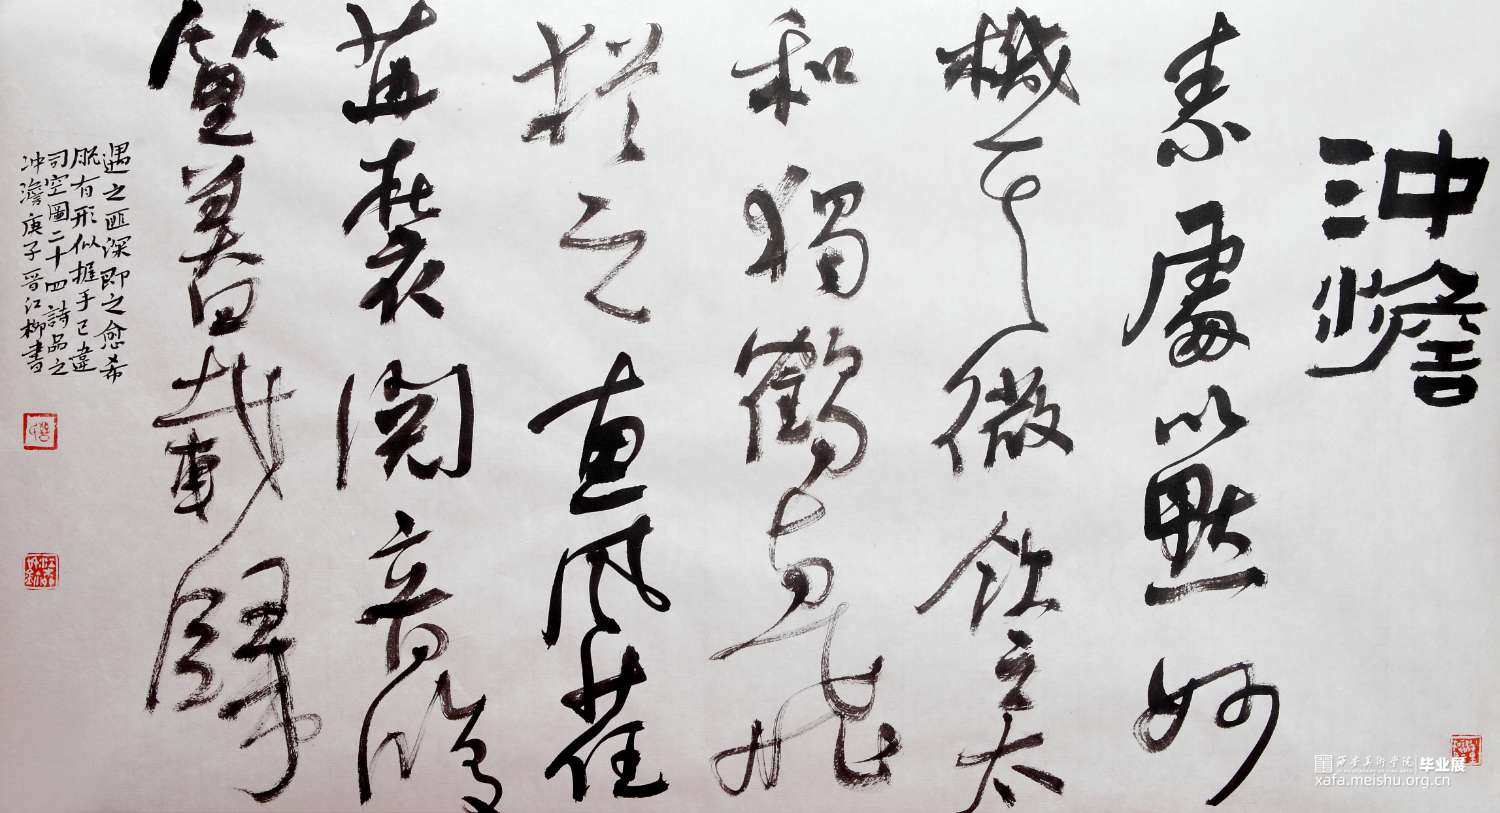 冲澹
素處以默妙
機其微飲之太
和獨鶴與飛
猶之惠風荏
苒在衣閱音修
篁美曰載歸
遇之匪深即之愈希
脱有形似握手已違
司空圖二十四詩品之
冲澹庚子晋江柳書
西安美術学院 毕业展
xafa.meishu.org.cn